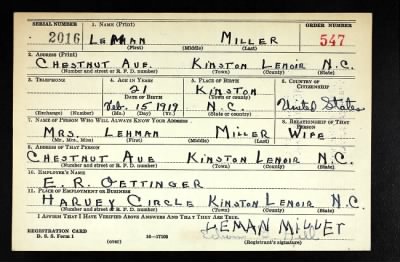 SERIAL NUMBER 1. NAME (Print) ORDER NUMBER
2016 LEMAN MILLER 547
(First) (Middle) (Last)
2. ADDRESS (Print)
CHESTNUT AVE. KINSTON LENOIR N.C.
(Number and street or R. F. D. number) (Town) (County) (State)
3. TELEPHONE 4. AGE IN YEARS 5. PLACE OF BIRTH 6. COUNTRY OF CITIZENSHIP
21 KINSTON
DATE OF BIRTH (Town or county)
Feb. 15 1919 N.C. United States
(Exchange) (Number) (Mo.) (Day) (Yr.) (State or country)
7. NAME OF PERSON WHO WILL ALWAYS KNOW YOUR ADDRESS 8. RELATIONSHIP OF THAT PERSON
MRS. LEHMAN MILLER WIFE
(Mr., Mrs., Miss) (First) (Middle) (Last)
9. ADDRESS OF THAT PERSON
CHESTNUT AVE KINSTON LENOIR N.C.
(Number and street or R. F. D. number) (Town) (County) (State)
10. EMPLOYER'S NAME
E. R. OETTINGER
11. PLACE OF EMPLOYMENT OR BUSINESS
HARVEY CIRCLE KINSTON LENOIR N.C.
(Number and street or R. F. D. number) (Town) (County) (State)
I AFFIRM THAT I HAVE VERIFIED ABOVE ANSWERS AND THAT THEY ARE TRUE.
LEMAN MILLER
REGISTRATION CARD
D. S. S. Form 1 (over) 16—17105 (Registrant's signature)